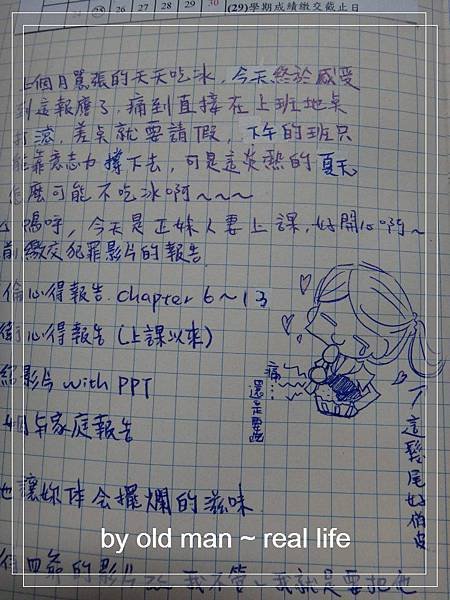 25 26 27 28 29 30 (29)學期成績繳交截止日
上個月囂張的天天吃冰，今天終於感受
到這報應了，痛到直接在上班地桌
打滾，差点就要請假，下午的班只
能靠意志力撐下去，可是這炎熱的夏天
怎麼可能不吃冰啊~~~
嗚呼，今天是正妹人妻上課，好開心啊~
前繳交犯罪影片的報告
倫心得報告.chapter 6~13
心得報告(上課以來)
影片 with PPT
家庭報告
痛...
還是要吃
這髮尾好俏皮
也讓妳体会擺爛的滋味
by old man ~ real life
的影片 我不管、我就是要把他